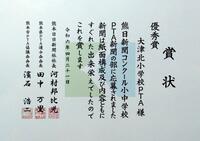 賞状
優秀賞
大津北小学校PTA 様
熊日新聞コンクール小中学校
PTA新聞の部に応募された
新聞は紙面構成及び内容ともに
すぐれた出来栄えでしたので
これを賞します
令和六年四月二十一日
熊本日日新聞社社長
河村邦比児
熊本県PTA連合会会長
田中万里
熊本市PTA協議会会長
濱石浩二